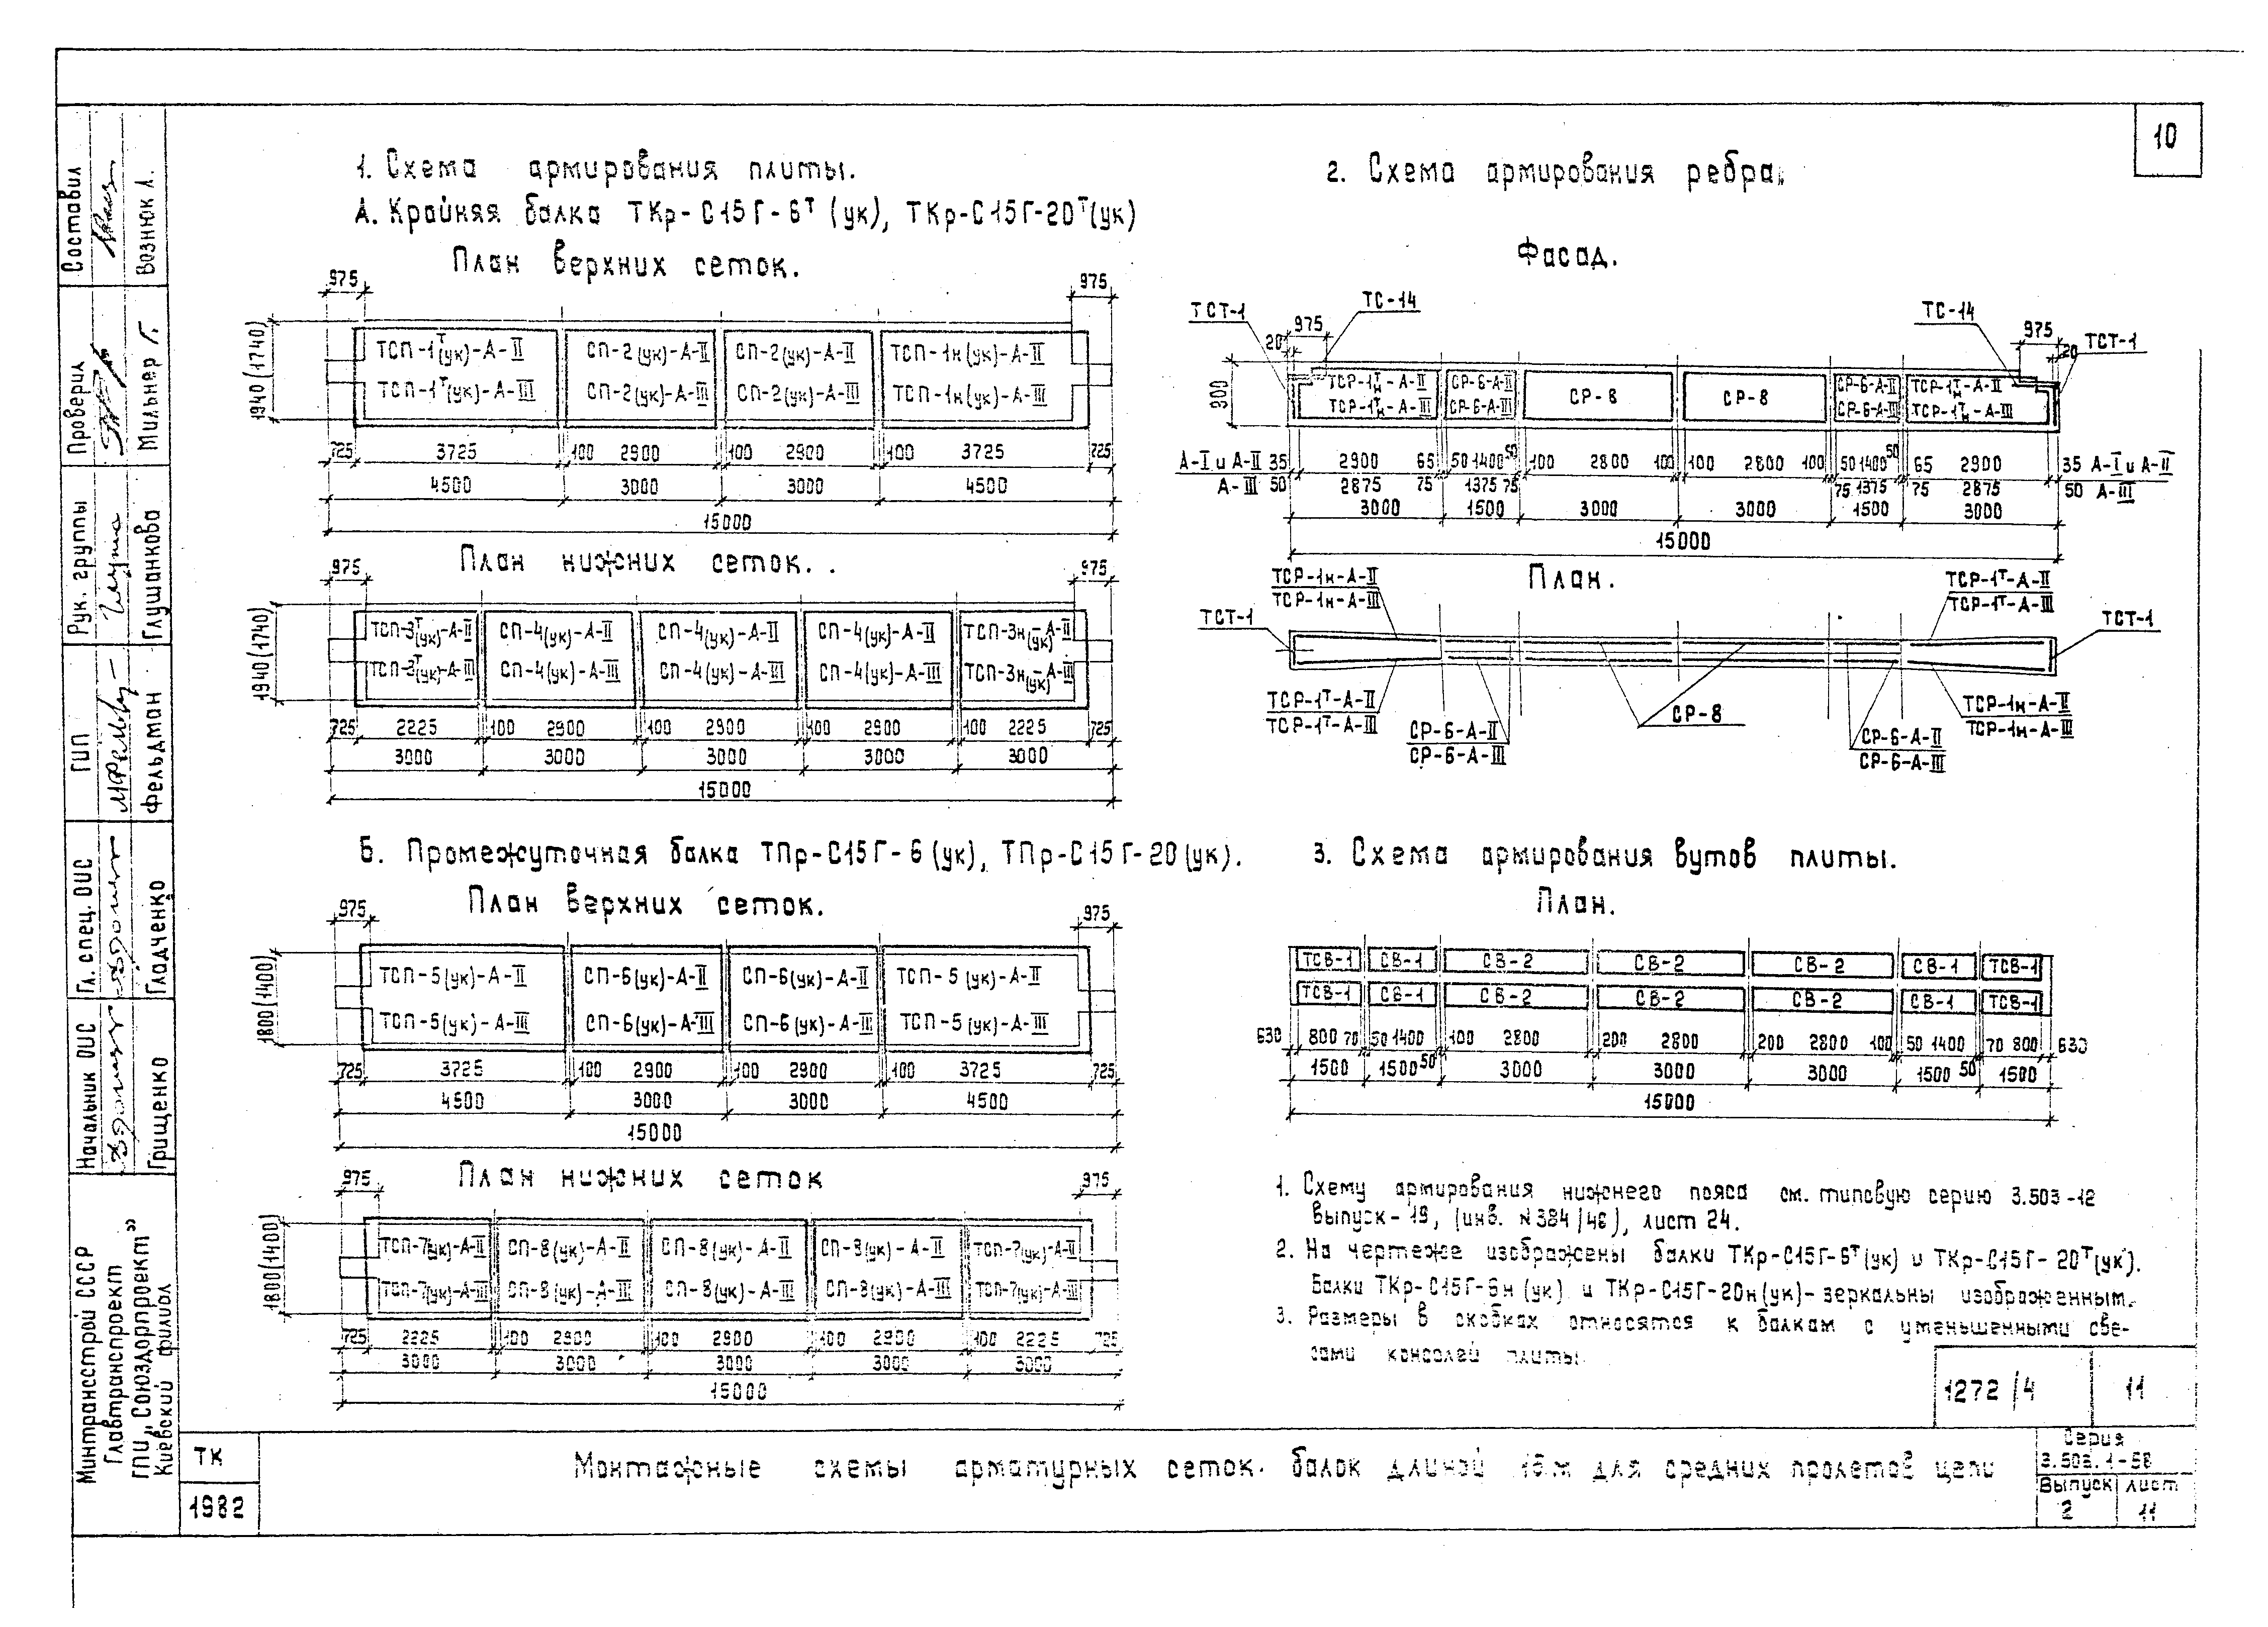 10
1. Схема армирования плиты.
А. Крайняя балка ТКр-С15Г-6Т (ук), ТКр-С15Г-20Т(ук)
План верхних сеток.
975 975
1940 (1740)
ТСП-1Т(ук)-А-II СП-2(ук)-А-II СП-2(ук)-А-II ТСП-1н(ук)-А-II
ТСП-1Т(ук)-А-III СП-2(ук)-А-III СП-2(ук)-А-III ТСП-1н(ук)-А-III
725 3725 100 2900 100 2900 100 3725 725
4500 3000 3000 4500
15000
План нижних сеток.
975 975
1940 (1740)
ТСП-3Т(ук)-А-II СП-4(ук)-А-II СП-4(ук)-А-II СП-4(ук)-А-II ТСП-3н(ук)-А-II
ТСП-3Т(ук)-А-III СП-4(ук)-А-III СП-4(ук)-А-III СП-4(ук)-А-III ТСП-3н(ук)-А-III
725 2225 100 2900 100 2900 100 2900 100 2225 725
3000 3000 3000 3000 3000
15000
Б. Промежуточная балка ТПр-С15Г-6 (ук), ТПр-С15Г-20 (ук).
План верхних сеток.
975 975
1800 (1400)
ТСП-5(ук)-А-II СП-6(ук)-А-II СП-6(ук)-А-II ТСП-5(ук)-А-II
ТСП-5(ук)-А-III СП-6(ук)-А-III СП-6(ук)-А-III ТСП-5(ук)-А-III
725 3725 100 2900 100 2900 100 3725 725
4500 3000 3000 4500
15000
План нижних сеток
975 975
1800 (1400)
ТСП-7(ук)-А-II СП-8(ук)-А-II СП-8(ук)-А-II СП-8(ук)-А-II ТСП-7(ук)-А-II
ТСП-7(ук)-А-III СП-8(ук)-А-III СП-8(ук)-А-III СП-8(ук)-А-III ТСП-7(ук)-А-III
725 2225 100 2900 100 2900 100 2900 100 2225 725
3000 3000 3000 3000 3000
15000
2. Схема армирования ребра.
Фасад.
ТСТ-1 ТС-14 ТС-14 ТСТ-1
20 975 975 20
900
ТСР-1Тн-А-II СР-6-А-II СР-8 СР-8 СР-6-А-II ТСР-1Тн-А-II
ТСР-1Тн-А-III СР-6-А-III СР-6-А-III ТСР-1Тн-А-III
А-I и А-II 35 2900 65 50 1400 50 100 2800 100 100 2800 100 50 1400 50 65 2900 35 А-I и А-II
А-III 50 2875 75 1375 75 75 1375 75 2875 50 А-III
3000 1500 3000 3000 1500 3000
15000
План.
ТСР-1н-А-II ТСР-1Т-А-II
ТСР-1н-А-III ТСР-1Т-А-III
ТСТ-1 ТСТ-1
ТСР-1Т-А-II СР-6-А-II СР-8 СР-6-А-II ТСР-1н-А-II
ТСР-1Т-А-III СР-6-А-III СР-6-А-III ТСР-1н-А-III
3. Схема армирования вутов плиты.
План.
ТСВ-1 СВ-1 СВ-2 СВ-2 СВ-2 СВ-1 ТСВ-1
ТСВ-1 СВ-1 СВ-2 СВ-2 СВ-2 СВ-1 ТСВ-1
630 800 70 50 1400 100 2800 200 2800 200 2800 100 50 1400 70 800 630
1500 1500 50 3000 3000 3000 1500 50 1500
15000
1. Схему армирования нижнего пояса см. типовую серию 3.503-12
выпуск-19, (инв. N384/46), лист 24.
2. На чертеже изображены балки ТКр-С15Г-6Т(ук) и ТКр-С15Г-20Т(ук).
Балки ТКр-С15Г-6н (ук) и ТКр-С15Г-20н(ук)-зеркальны изображенным.
3. Размеры в скобках относятся к балкам с уменьшенными све-
сами консолей плиты.
1272/4 11
ТК
1982
Монтажные схемы арматурных сеток балок длиной 15м для средних пролетов цепи
Серия
3.503.1-58
Выпуск лист
2 11
Составил Вознюк Л.
Проверил Мильнер Г.
Рук. группы Глушанкова
ГИП Фельдман
Гл. спец. ОИС Гладченко
Начальник ОИС Грищенко
Минтрансстрой СССР
Главтранспроект
ГПИ „Союздорпроект"
Киевский филиал